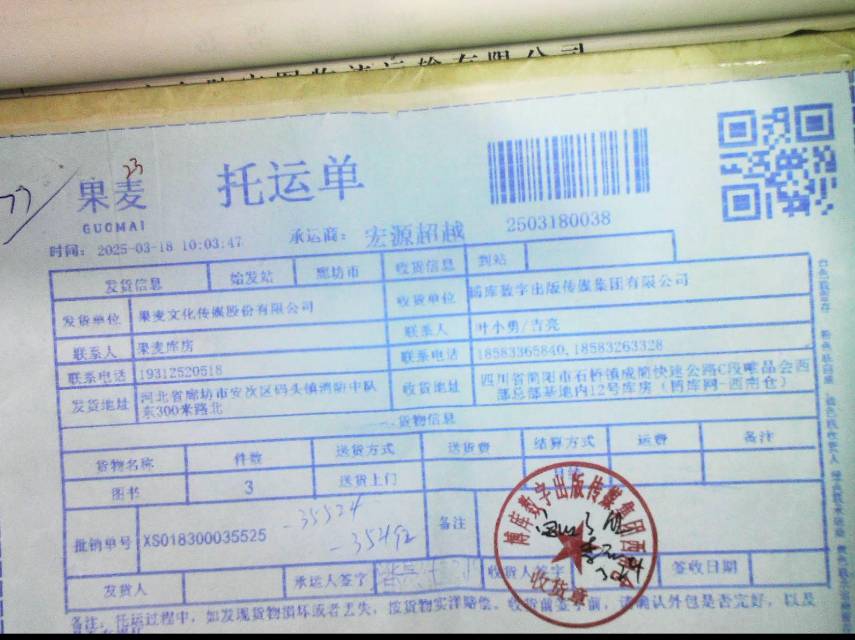 23
果麦
GUOMAI
托运单
2503180038
时间: 2025-03-18 10:03:47
承运商: 宏源超越
发货信息 始发站 廊坊市 收货信息 到站
发货单位 果麦文化传媒股份有限公司 收货单位 博库数字出版传媒集团有限公司
联系人 果麦库房 联系人 叶小勇/吉亮
联系电话 19312520518 联系电话 18583365840,18583263328
发货地址 河北省廊坊市安次区码头镇消防中队
东300米路北
收货地址 四川省简阳市石桥镇成简快速公路C段唯品会西
部总部基地内12号库房（博库网-西南仓）
货物信息
货物名称 件数 送货方式 送货费 结算方式 运费 备注
图书 3 送货上门
批销单号 XS018300035525 -35524
-35492
备注
发货人 承运人签字 收货人签字 签收日期
博库数字出版传媒集团
收货章
备注: 托运过程中, 如发现货物损坏或者丢失, 按货物实洋赔偿。收货前签字前, 请确认外包是否完好, 以及